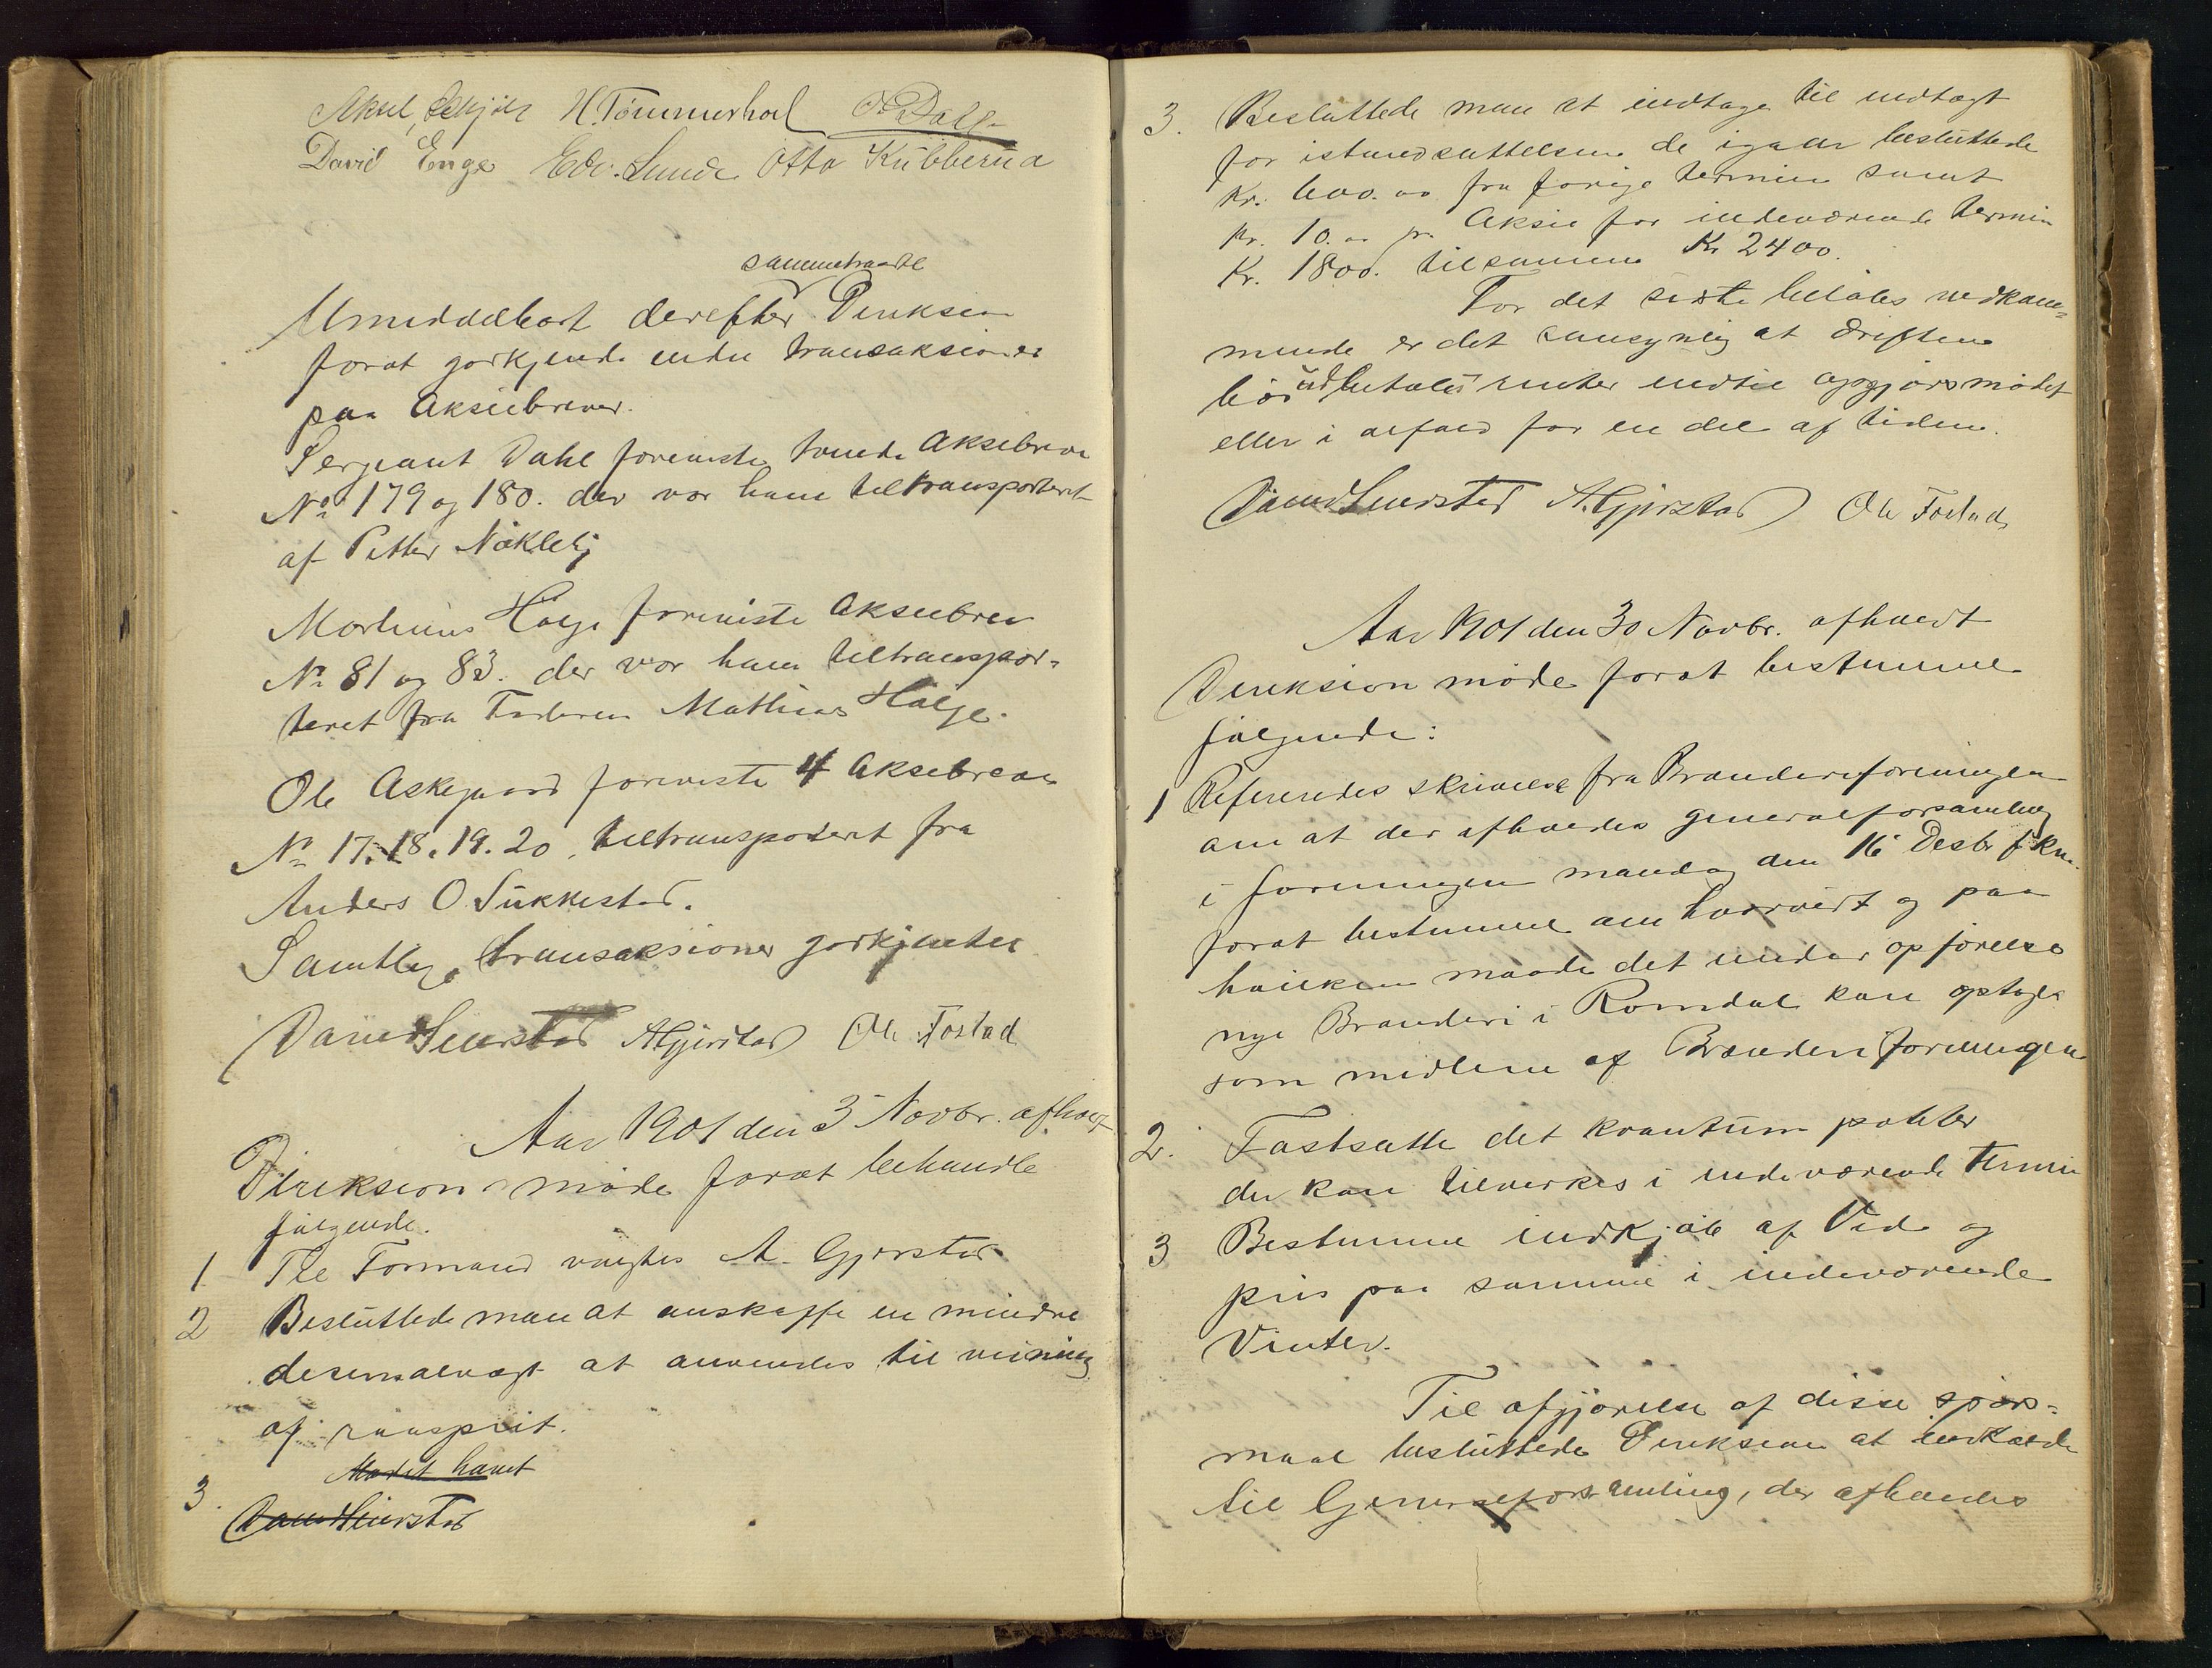 Aksel H. Tömmerhol O. Dahl
David Enge Edv. Lunde Otto Kübberud
sammetraadte
Umiddelbart derefter Direksion
forat godkjende endre transaksioner
paa Aksiebrever.
Sergeant Dahl foreviste tvende Aksiebreve
No 179 og 180. der var ham tiltransporteret
af Petter Nökleby
Martinius Hölje foreviste Aksiebrev
No 81 og 83. der var ham tiltranspor-
teret fra Faderen Mathias Hölje.
Ole Askegaard foreviste 4 Aksiebreve
No 17. 18. 19. 20. tiltransporteret fra
Anders O. Sukkestad.
Samtlige transaksioner godkjentes
Ole Fostad
Aar 1901 den 5 Novbr. afholdt
Direksion möde forat behandle
fölgende.
1 Til Formand valgtes A. Gjerstad
2 Besluttede man at anskaffe en mindre
desimalvægt at anvendes til veining
af raasprit.
Mödet hævet
3.
3. Besluttede man at indtage til indtægt
for istandsættelsen de igaar besluttede
Kr. 600.00 fra forrige termin samt
Kr. 10.00 pr. Aksie for indeværende termin
Kr. 1800. tilsammen Kr 2400.
For det siste beløbs vedkom-
mende er det sansynlig at driften
bör udbetales renter indtil opgjörsmödet
eller i alfald for en del af tiden.
A. Gjerstad Ole Fostad
Aar 1901 den 30 Novbr. afholdt
Direksion möde forat bestemme
fölgende:
1 Refereredes skrivelse fra Brænderiforeningen
om at der afholdes generalforsamling
i foreningen mandag den 16 Desbr f. k.
forat bestemme om hvorvidt og paa
hvilken maade det under opförelse
nye Brænderi i Romdal kan optages
som medlem af Brænderiforeningen
2. Fastsætte det kvantum poteter
der kan tilvirkes i indeværende termin
3 Bestemme indkjöb af Ved og
pris paa samme i indeværende
Vinter.
Til afgjörelse af disse spörs-
maal besluttede Direksion at indkalde
til Generalforsamling, der afholdes